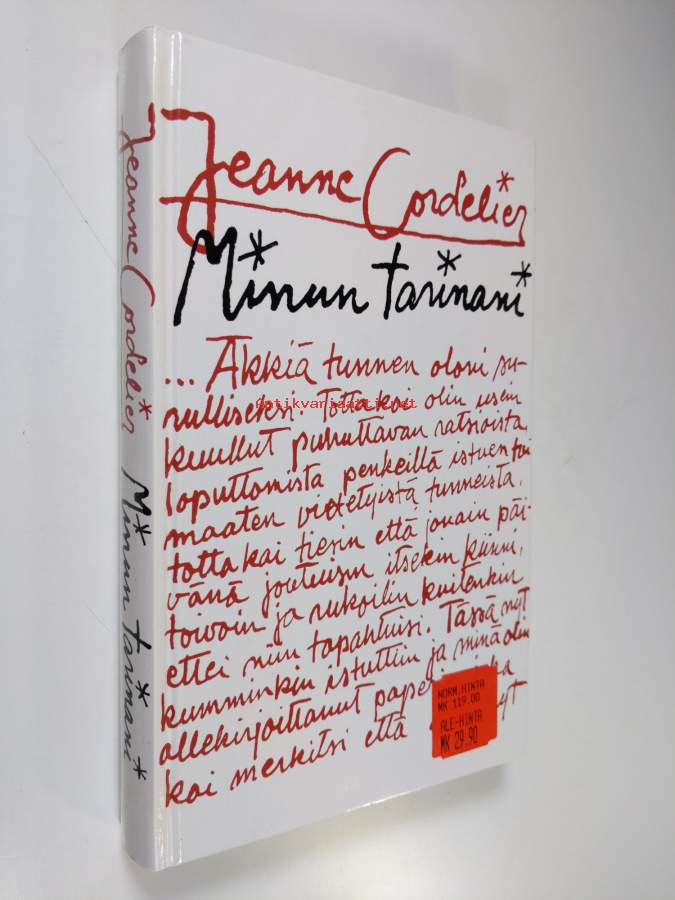 Jeanne Cordelier
Minun tarinani
... Äkkiä tunnen oloni su-
rulliseksi. Tottakai olin usein
kuullut puhuttavan ratsioista
loputtomista penkeillä istuen tai
maaten vietetyistä tunneista,
totta kai tiesin että jonain päi-
vänä joutuisin itsekin kiinni,
toivoin ja rukoilin kuitenkin
ettei niin tapahtuisi. Tässä nyt
kumminkin istuttiin ja minä olin
allekirjoittanut
kai merkitsi että
NORM.HINTA
MK 119.00
ALE-HINTA
MK 29.90
Jeanne Cordelier Minun tarinani
antikvariaatti.net